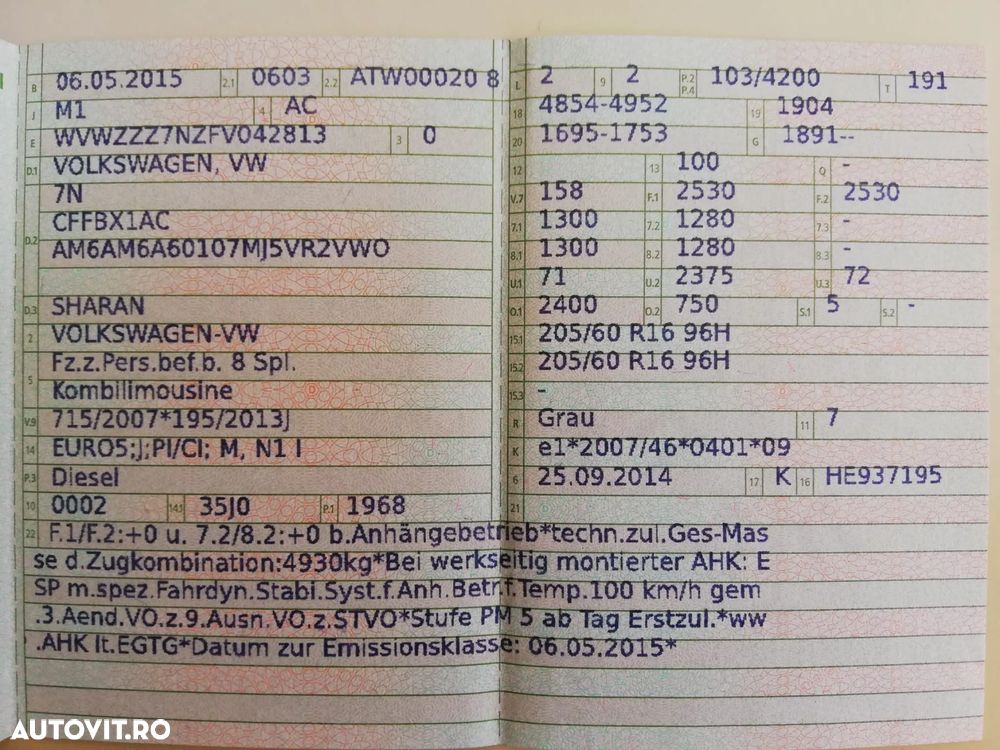 B 06.05.2015 2.1 0603 2.2 ATW00020 8 L 2 9 2 P.2 P.4 103/4200 T 191
J M1 4 AC 18 4854-4952 19 1904
E WVWZZZ7NZFV042813 3 0 20 1695-1753 G 1891--
D.1 VOLKSWAGEN, VW 12 13 100 Q -
7N V.7 158 F.1 2530 F.2 2530
D.2 CFFBX1AC 7.1 1300 7.2 1280 7.3 -
AM6AM6A60107MJ5VR2VWO 8.1 1300 8.2 1280 8.3 -
U.1 71 U.2 2375 U.3 72
D.3 SHARAN O.1 2400 O.2 750 S.1 5 S.2 -
2 VOLKSWAGEN-VW 15.1 205/60 R16 96H
5 Fz.z.Pers.bef.b. 8 Spl. 15.2 205/60 R16 96H
Kombilimousine 15.3 -
V.9 715/2007*195/2013J R Grau 11 7
14 EURO5;J;PI/CI; M, N1 I K e1*2007/46*0401*09
P.3 Diesel 6 25.09.2014 17 K 16 HE937195
10 0002 14.1 35J0 P.1 1968 21
22 F.1/F.2:+0 u. 7.2/8.2:+0 b.Anhängebetrieb*techn.zul.Ges-Mas
se d.Zugkombination:4930kg*Bei werkseitig montierter AHK: E
SP m.spez.Fahrdyn.Stabi.Syst.f.Anh.Betr.f.Temp.100 km/h gem
.3.Aend.VO.z.9.Ausn.VO.z.STVO*Stufe PM 5 ab Tag Erstzul.*ww
.AHK lt.EGTG*Datum zur Emissionsklasse: 06.05.2015*
AUTOVIT.RO